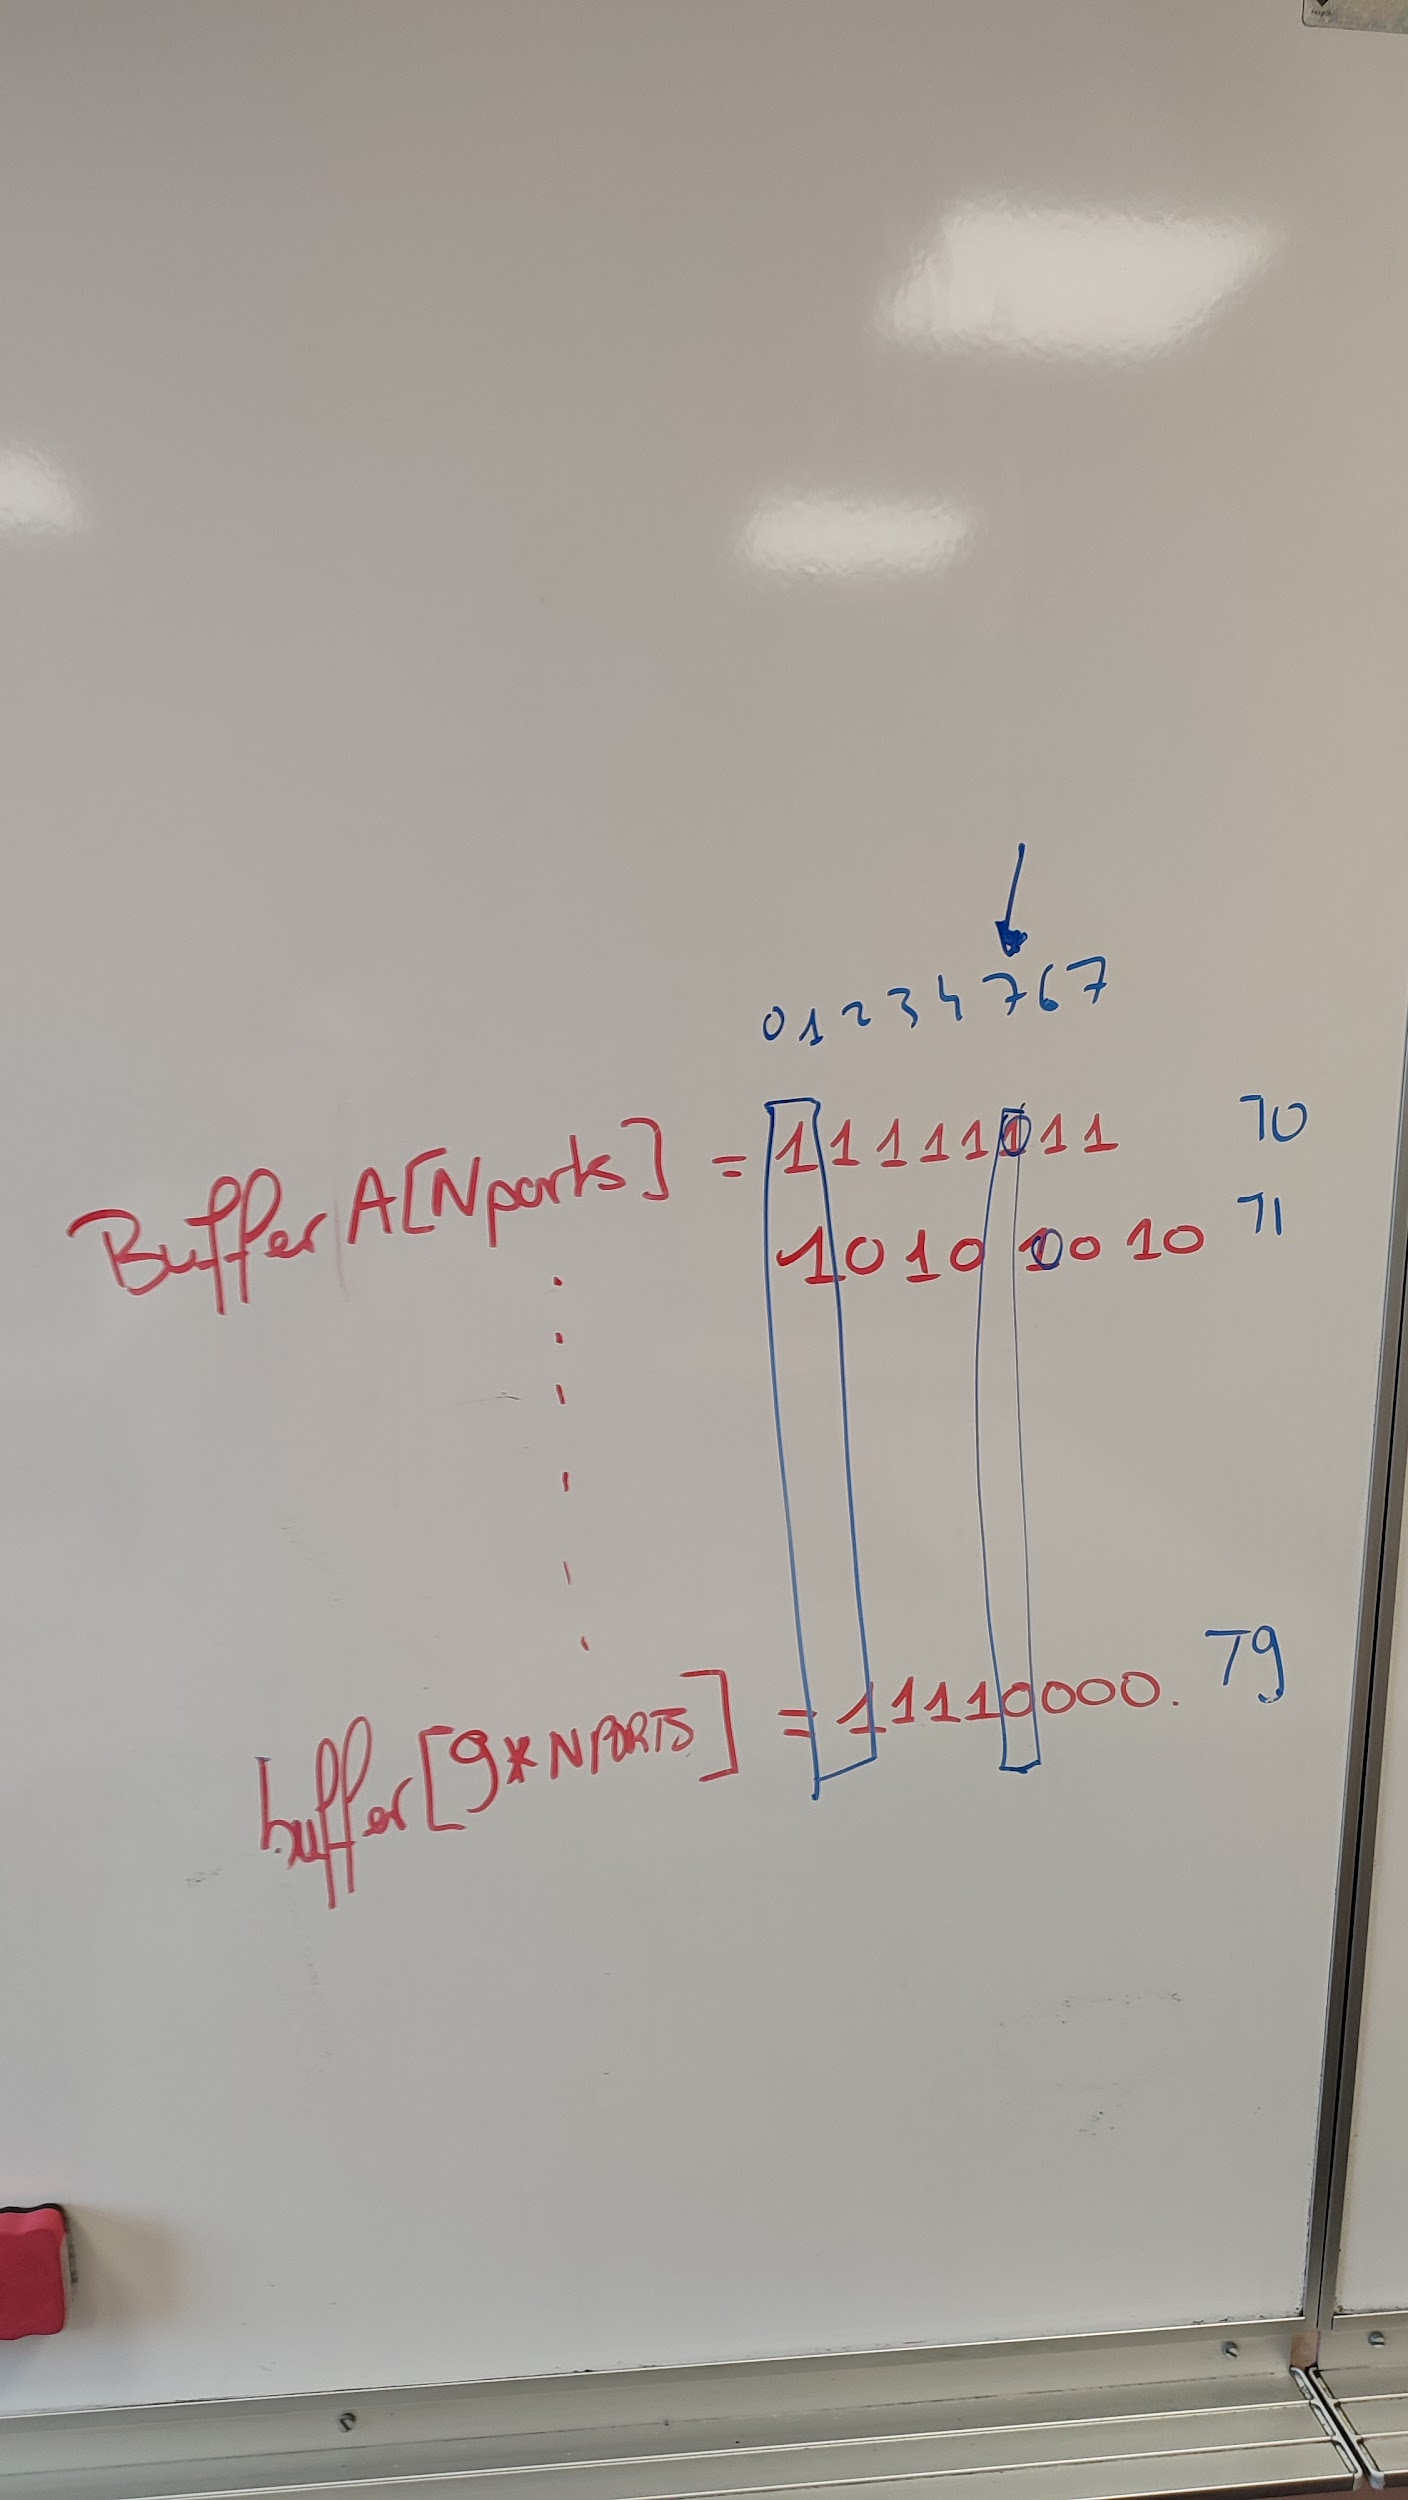 0 1 2 3 4 7 6 7
Buffer A[Nports] = 11111111 T0
1010 1010 T1
buffer[9*NPORTS] = 11110000. T9